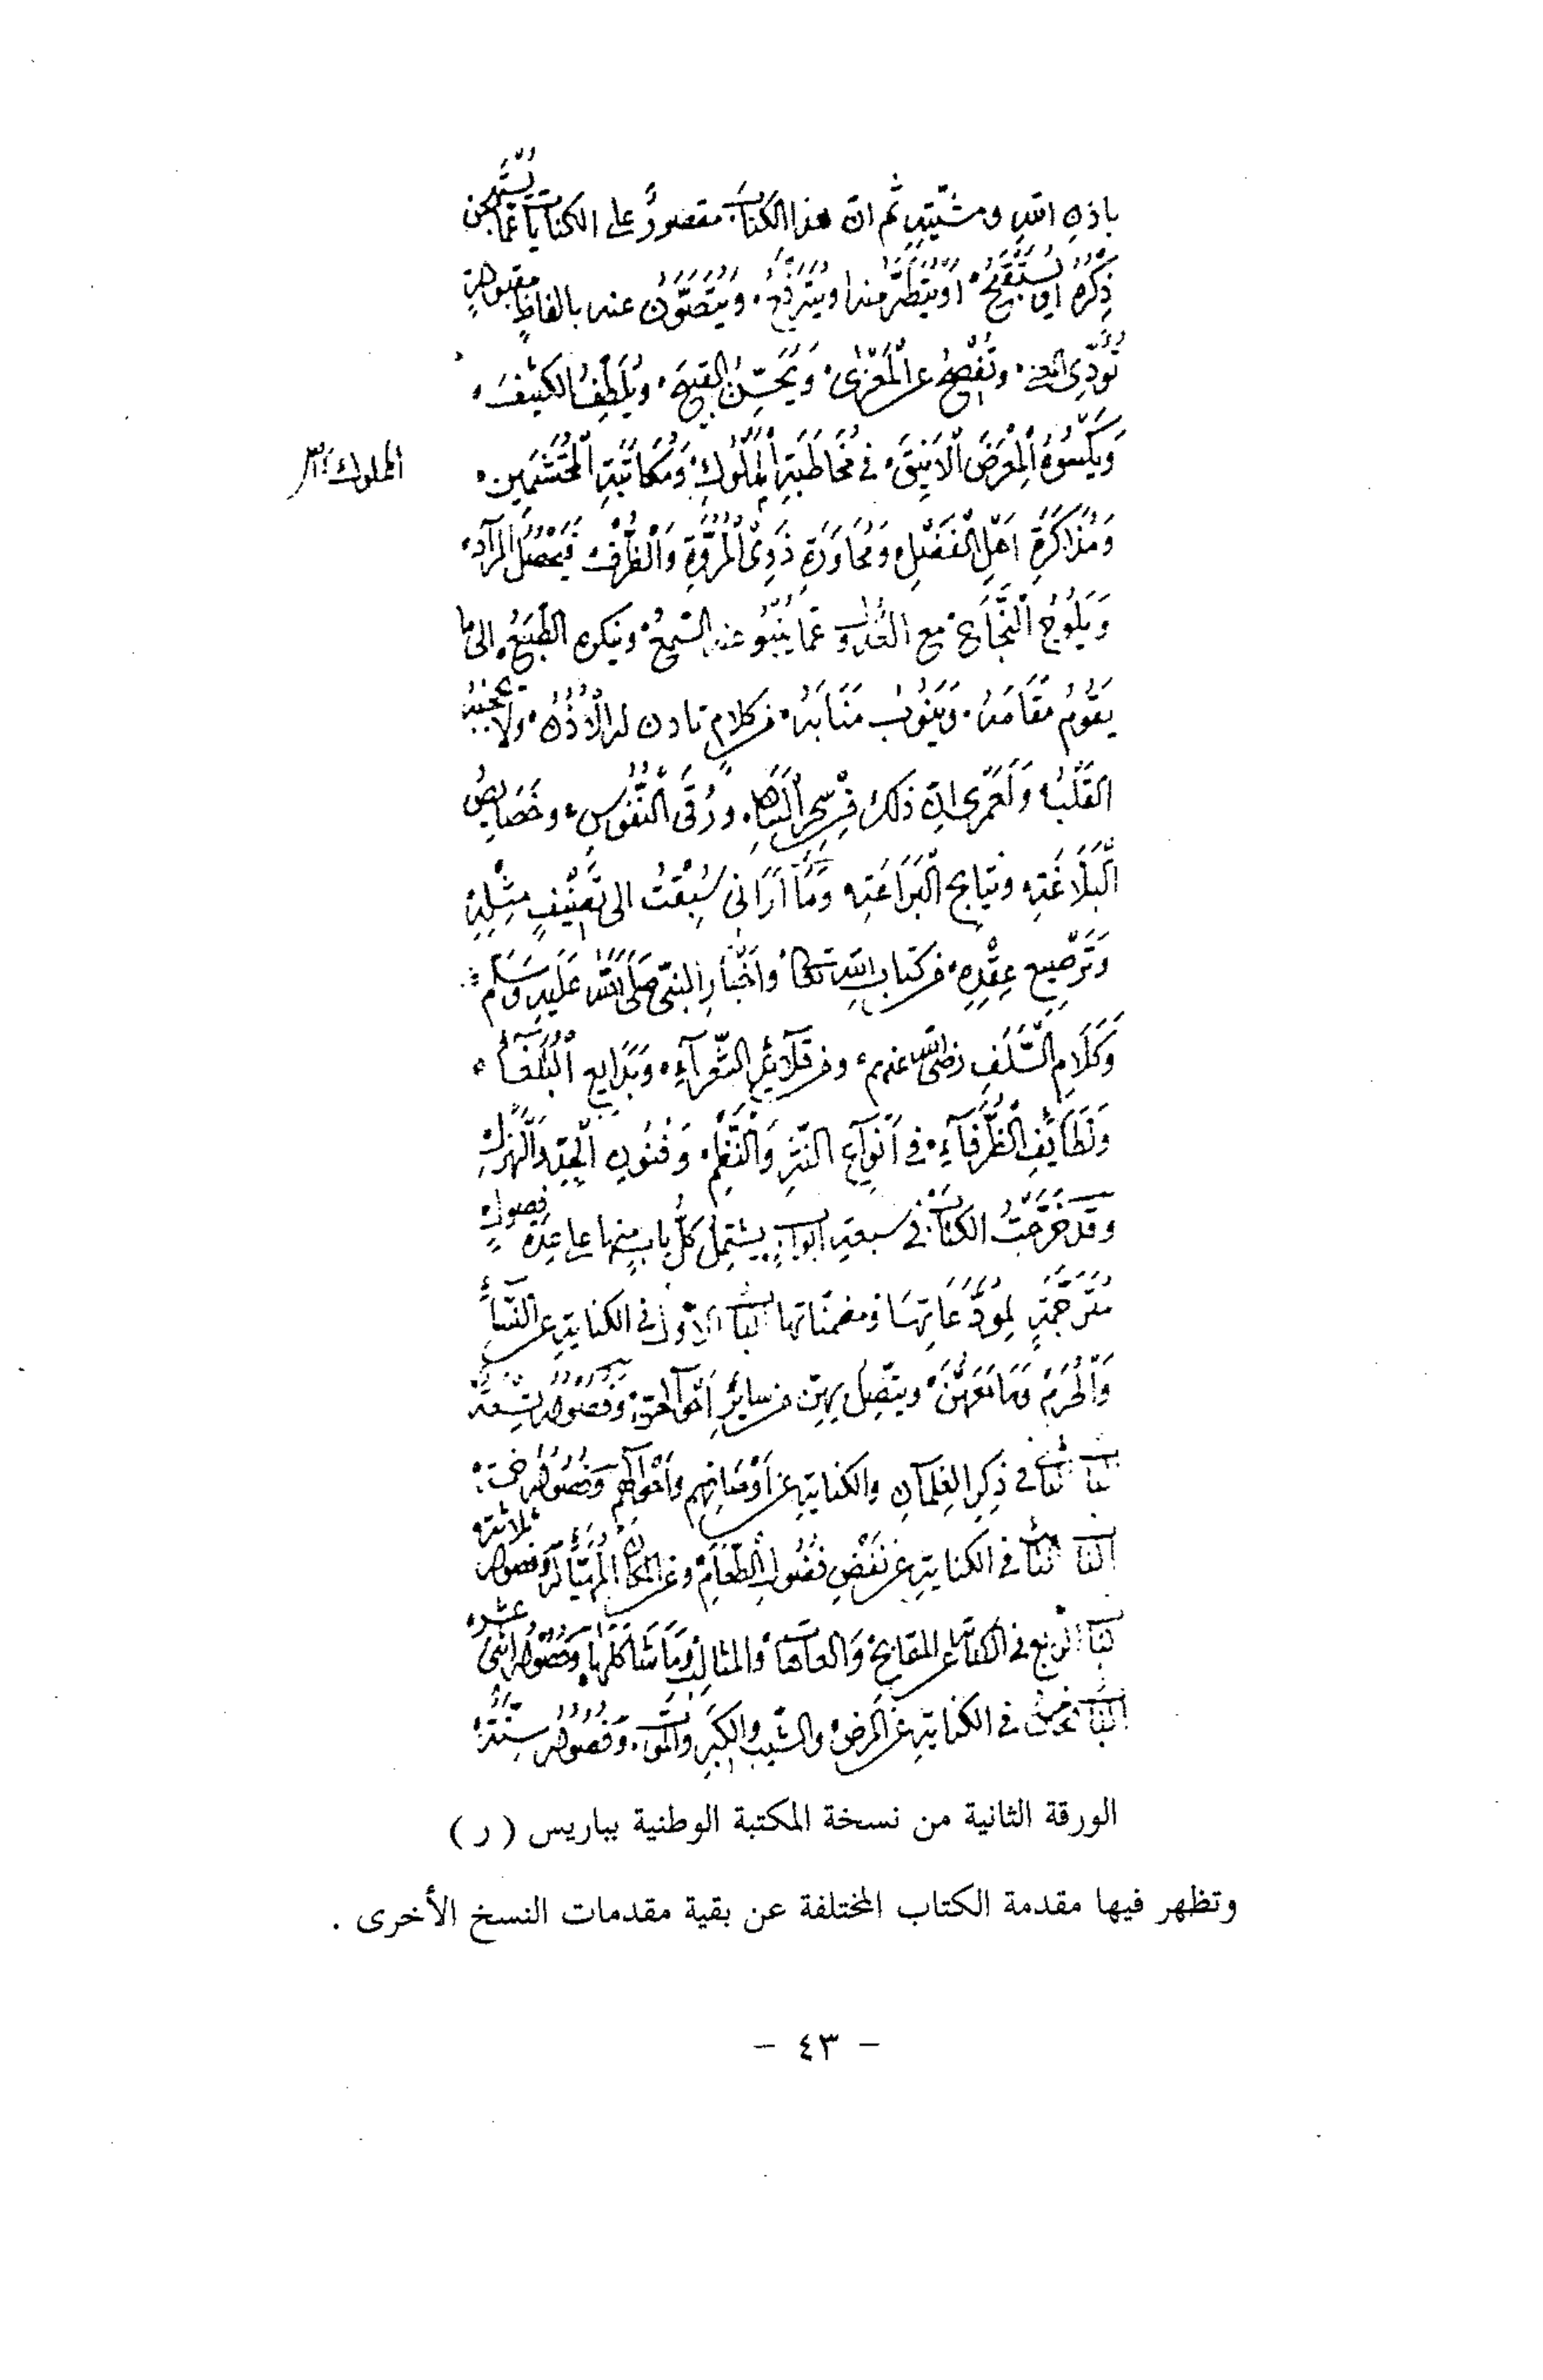 باذن الله ومشيته ثم ان هذا الكتاب مقصور على الكنايات عما يستهجن
ذكره او يستقبح او يتطير منه او يسترفع ويتصون عنه بالفاظ مقبولة
تؤدي المعنى وتفصح عن المغزى ويحسن القبيح ويلطف الكثيف
ويكسوه المعرض الانيق في مخاطبة الملوك ومكاتبة المحتشمين
الملوك
ومذاكرة اهل الفضل ومحاورة ذوي المروة والظرف فيحصل المراد
ويلوح النجاح مع العدول عما ينبو عنه السمع ويكره الطبع الى ما
يقوم مقامه وينوب منابه من كلام تاذن له الاذن ولا يحجبه
القلب ولعمري ان ذلك من سحر البيان ورقى النفوس وخصايص
البلاغة ونتايج البراعة وما اراني سبقت الى تصنيف مثله
وترصيع عقده من كتاب الله تعالى واخبار النبي صلى الله عليه وسلم
وكلام السلف رضي الله عنهم ومن قلايد الشعراء وبدايع البلغاء
ولطايف الظرفاء في انواع النثر والنظم وفنون الجد والهزل
وقد خرجت الكتاب في سبعة ابواب يشتمل كل باب منها على عدة فصول
مترجمة لمودعاتها ومضمناتها الباب الاول في الكناية عن النساء
والحرم وما معهن ويتصل بهن من ساير احوالهن وفصوله تسعة
الباب الثاني في ذكر الغلمان والكناية عن اوصافهم واحوالهم وفصوله خمسة
الباب الثالث في الكناية عن نفض فضول الطعام وعن المكان المهيأ له وفصوله ثلاثة
الباب الرابع في الكناية عن المقابح والعاهات والمثالب وما شاكلها وفصوله اثنى عشر
الباب الخامس في الكناية عن المرض والشيب والكبر والموت وفصوله ستة
الورقة الثانية من نسخة المكتبة الوطنية بباريس ( ر )
وتظهر فيها مقدمة الكتاب المختلفة عن بقية مقدمات النسخ الأخرى .
– ٤٣ –